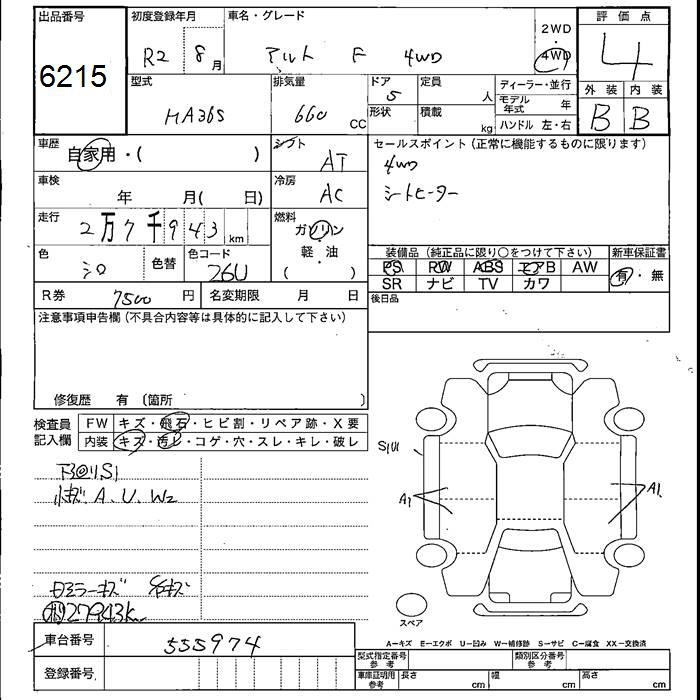 出品番号
6215
初度登録年月
R2 8月
車名・グレード
アルト F 4WD
2WD
・
4WD
評価点
4
型式
HA36S
排気量
660 CC
ドア
5
形状
定員
人
積載
kg
ディーラー・並行
モデル年式 年
ハンドル 左・右
外装 内装
B B
車歴
自家用・( )
シフト
AT
車検
年 月( 日)
冷房
AC
走行
2万7千943 km
燃料
ガソリン
軽・油
( )
色
シロ
色替
色コード
26U
R券 7500 円
名変期限 月 日
セールスポイント(正常に機能するものに限ります)
4WD
シートヒーター
装備品(純正品に限り○をつけて下さい)
新車保証書
PS RW ABS エアB AW
SR ナビ TV カワ
有・無
後日品
注意事項申告欄(不具合内容等は具体的に記入して下さい)
修復歴 有 (箇所 )
検査員記入欄
FW キズ・飛石・ヒビ割・リペア跡・X要
内装 キズ・汚レ・コゲ・穴・スレ・キレ・破レ
小キズ A、U、W2
27943km
S1U1
A1
A1
スペア
A−キズ E−エクボ U−凹み W−補修跡 S−サビ C−腐食 XX−交換済
車台番号 555974
登録番号
型式指定番号 参考
類別区分番号 参考
車庫証明用 参考
長さ cm
幅 cm
高さ cm